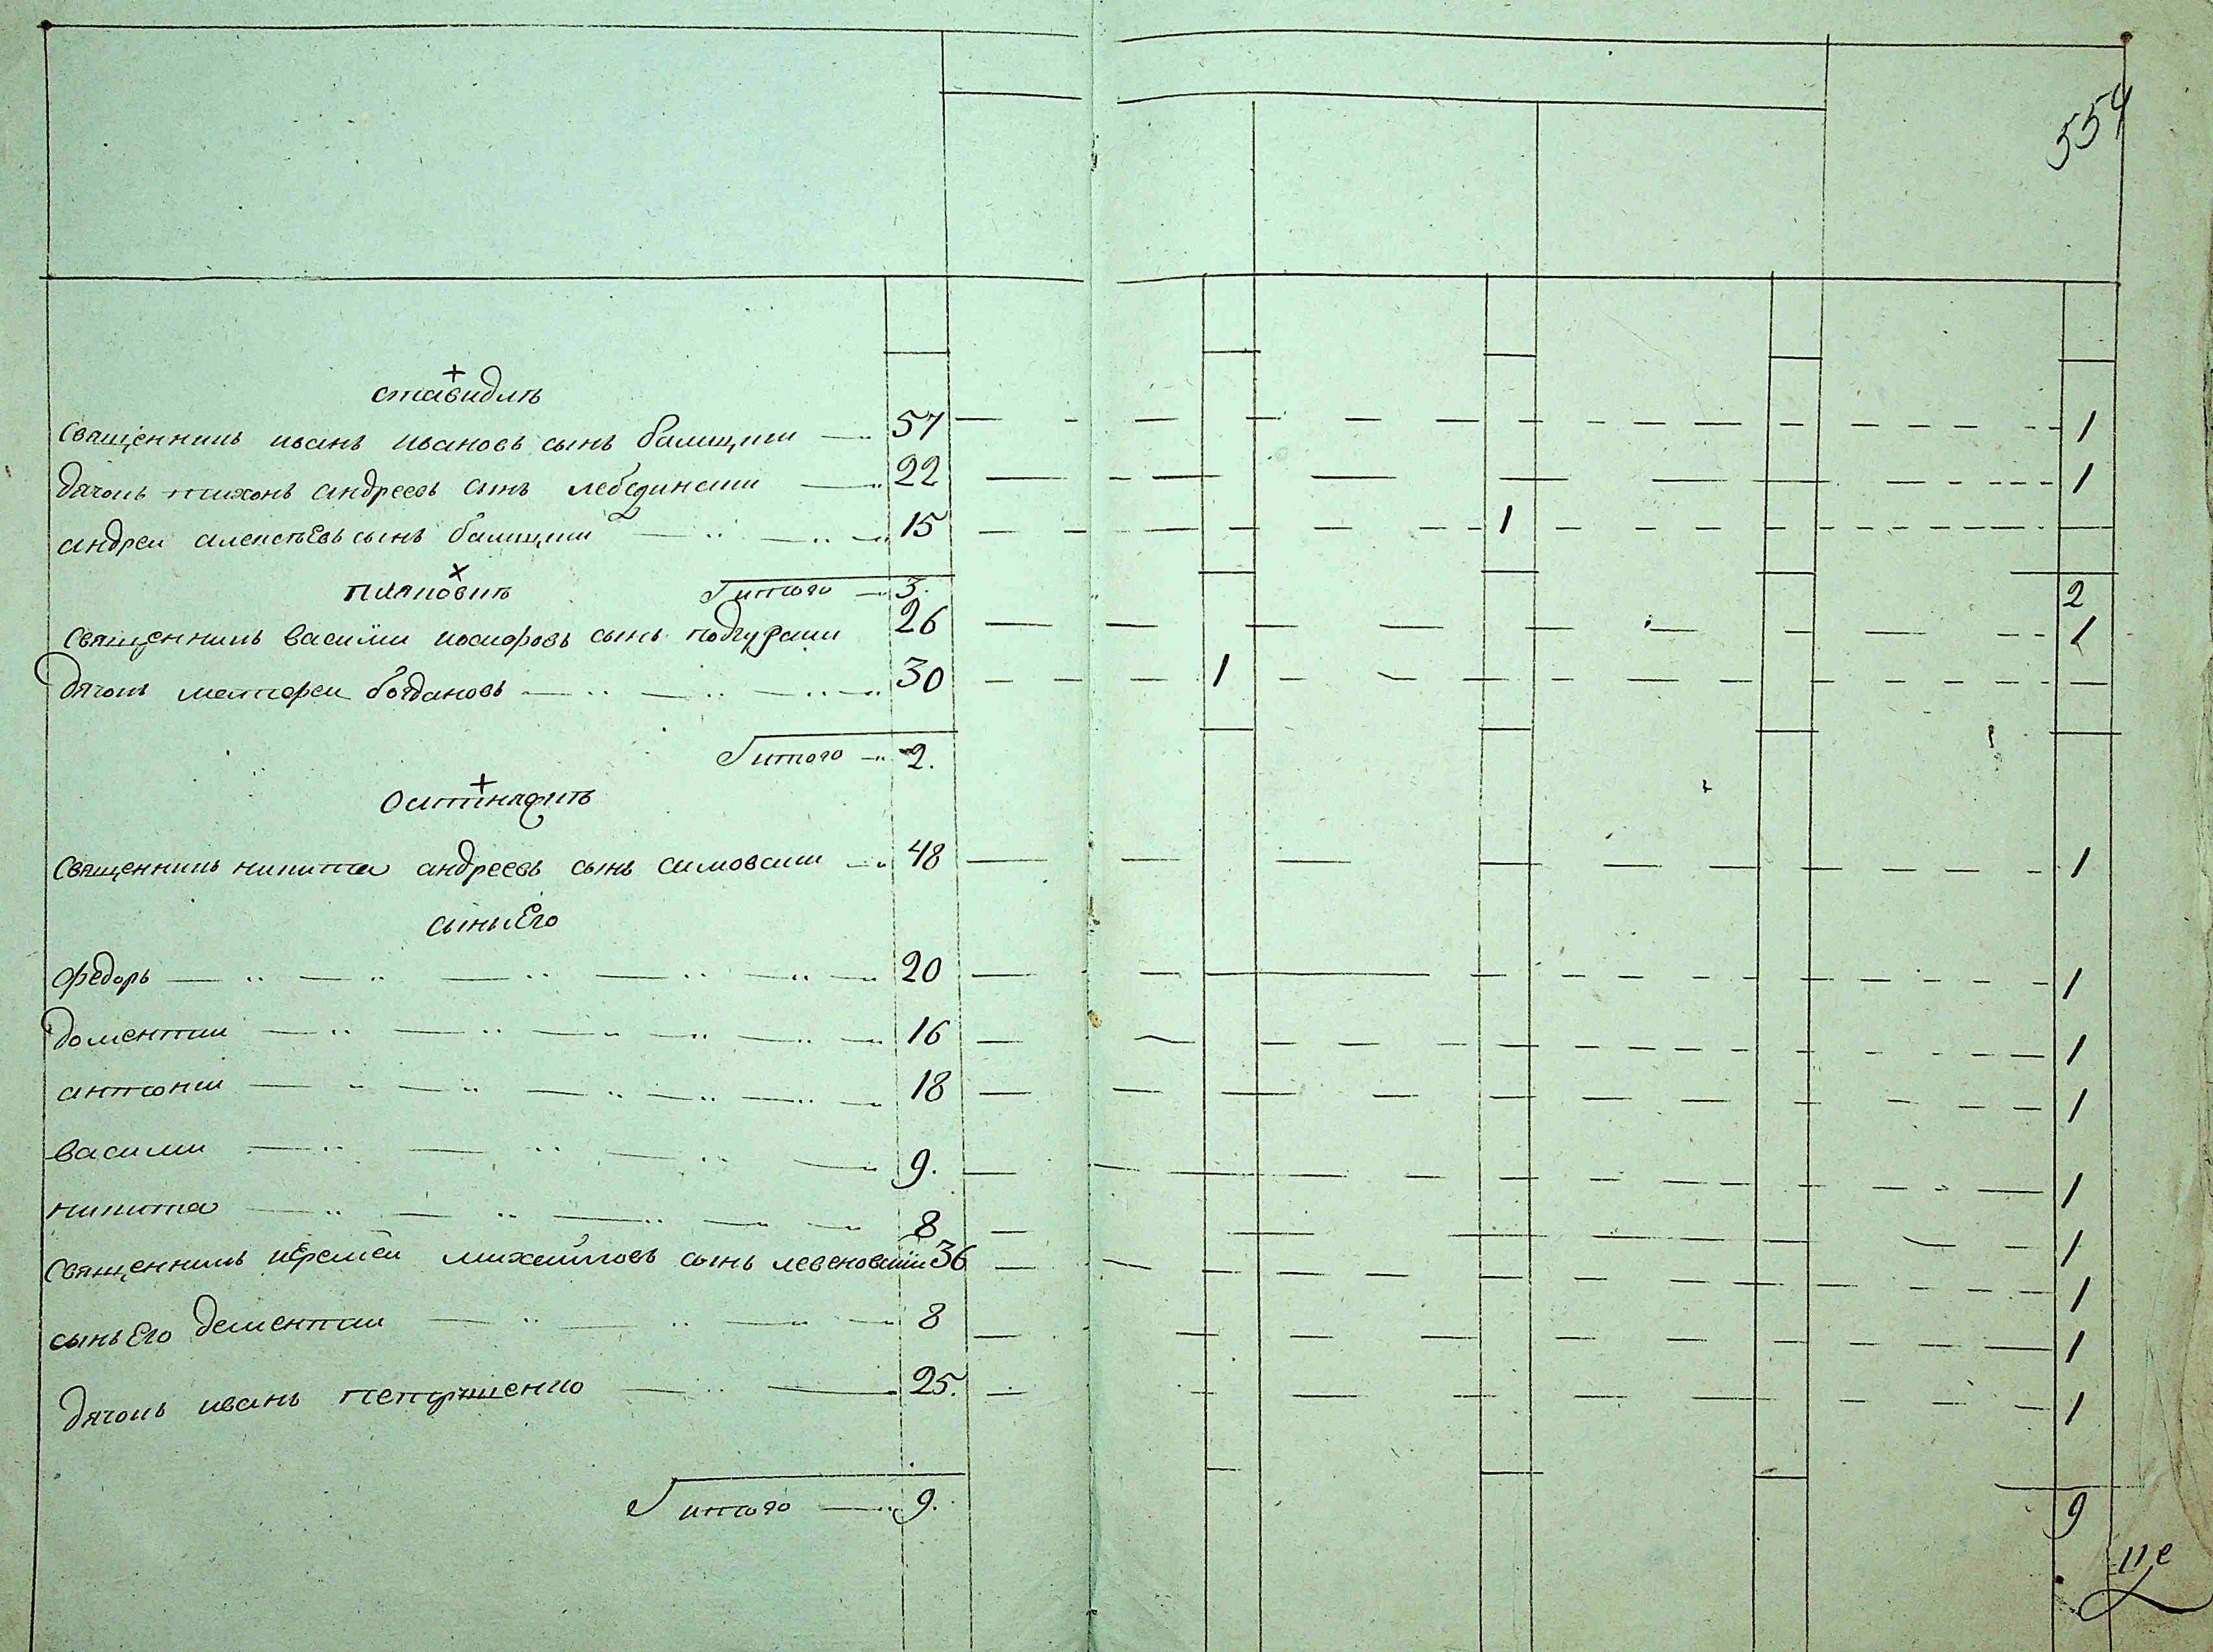 554
ставидлъ
священникъ иванъ ивановъ сынъ балицкии 57 1
дячокъ тихонъ андреевъ сынъ лебединскии 22 1
андреи алексѣевъ сынъ балицкии 15 1
пиляковить
итого 3. 2
священникъ василïи иосифовъ сынъ подгурскии 26 1
дячокъ маттофеи богдановъ 30 1
итого 2.
священникъ никита андреевъ сынъ симовскии 48 1
сыны Его
федоръ 20 1
доментии 16 1
антонии 18 1
василии 9. 1
никита 8 1
священникъ иЕремѣи михаиловъ сынъ левеновскïи 36 1
сынъ Его дементии 8 1
дячокъ иванъ 25. 1
итого 9. 9